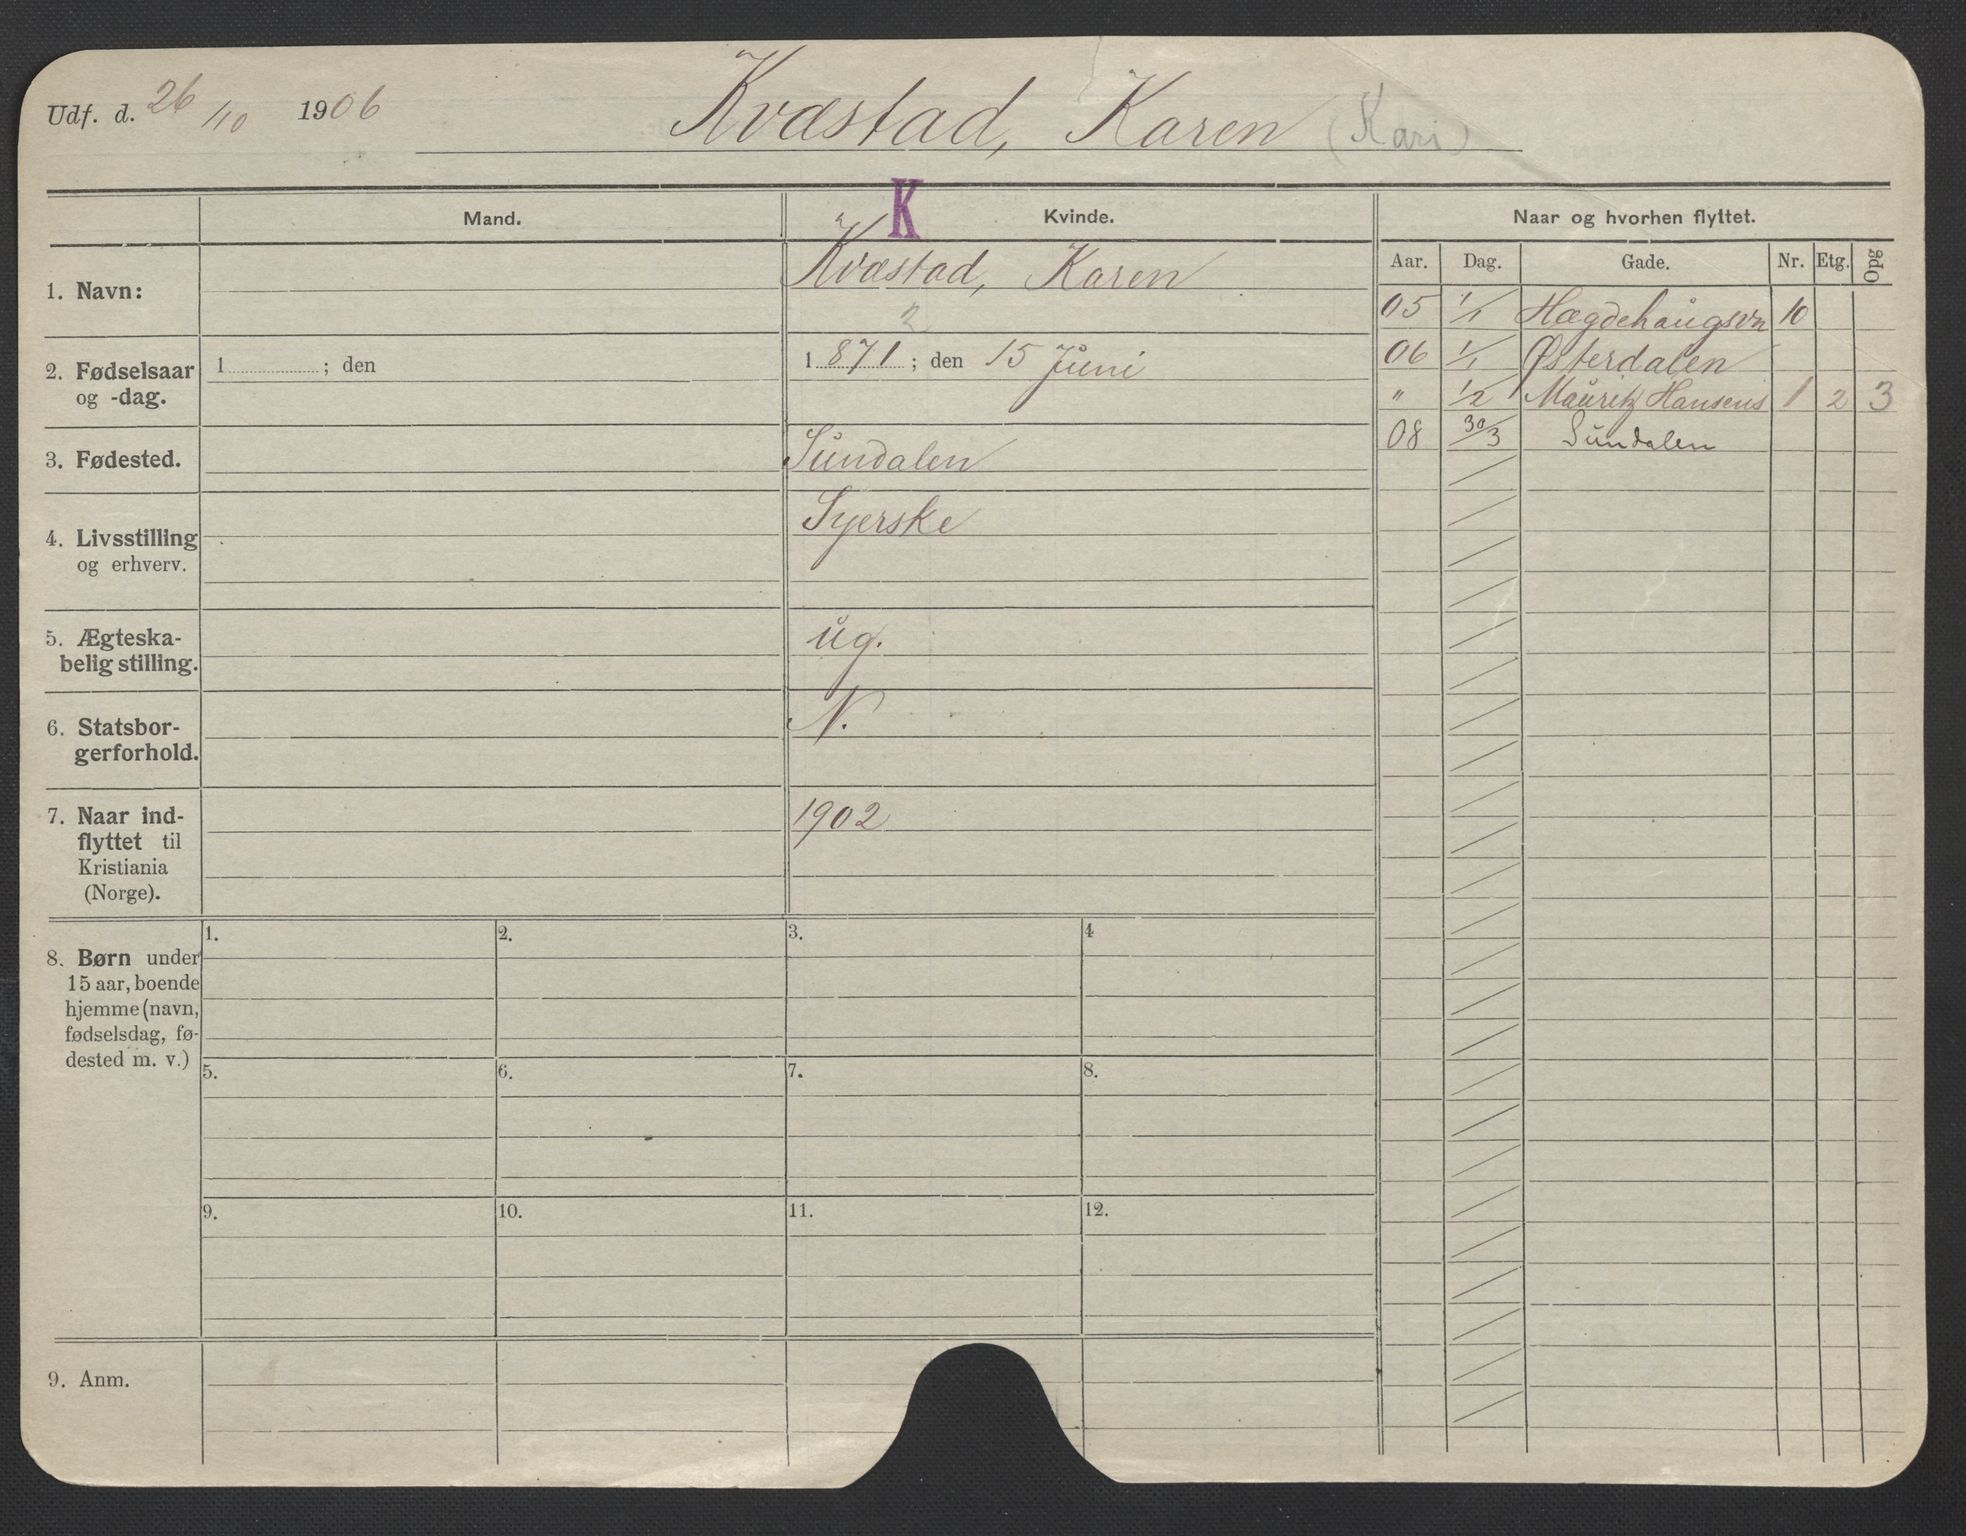 Udf. d. 26/10 1906 Kvæstad, Karen (Kari)
K
Mand. Kvinde. Naar og hvorhen flyttet.
Aar. Dag. Gade. Nr. Etg. Opg
1. Navn: Kvæstad, Karen
2
2. Fødselsaar og -dag. 1 ; den 1871 ; den 15 Juni
3. Fødested. Sundalen
4. Livsstilling og erhverv. Syerske
5. Ægteskabelig stilling. ug.
6. Statsborgerforhold. N.
7. Naar indflyttet til Kristiania (Norge). 1902
05 1/1 Hægdehaugsvn 10
06 1/1 Østerdalen
" 1/2 Mauritz Hansens 1 2 3
08 30/3 Sundalen
8. Børn under 15 aar, boende hjemme (navn, fødselsdag, fødested m. v.)
1. 2. 3. 4
5. 6. 7. 8.
9. 10. 11. 12.
9. Anm.